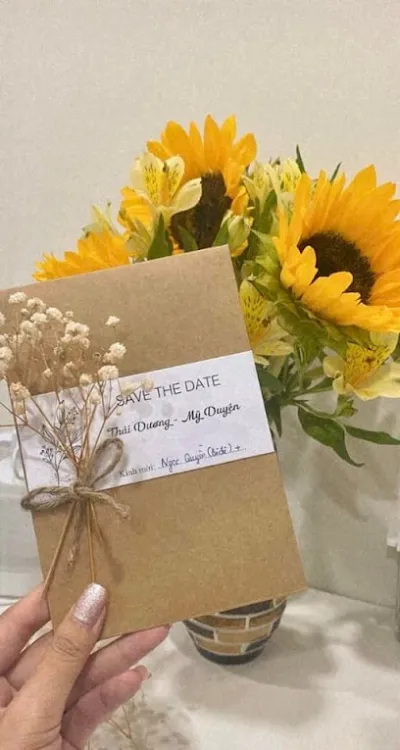 SAVE THE DATE
Thái Dương - Mỹ Duyên
Kính mời: Ngọc Quyên (bède) +